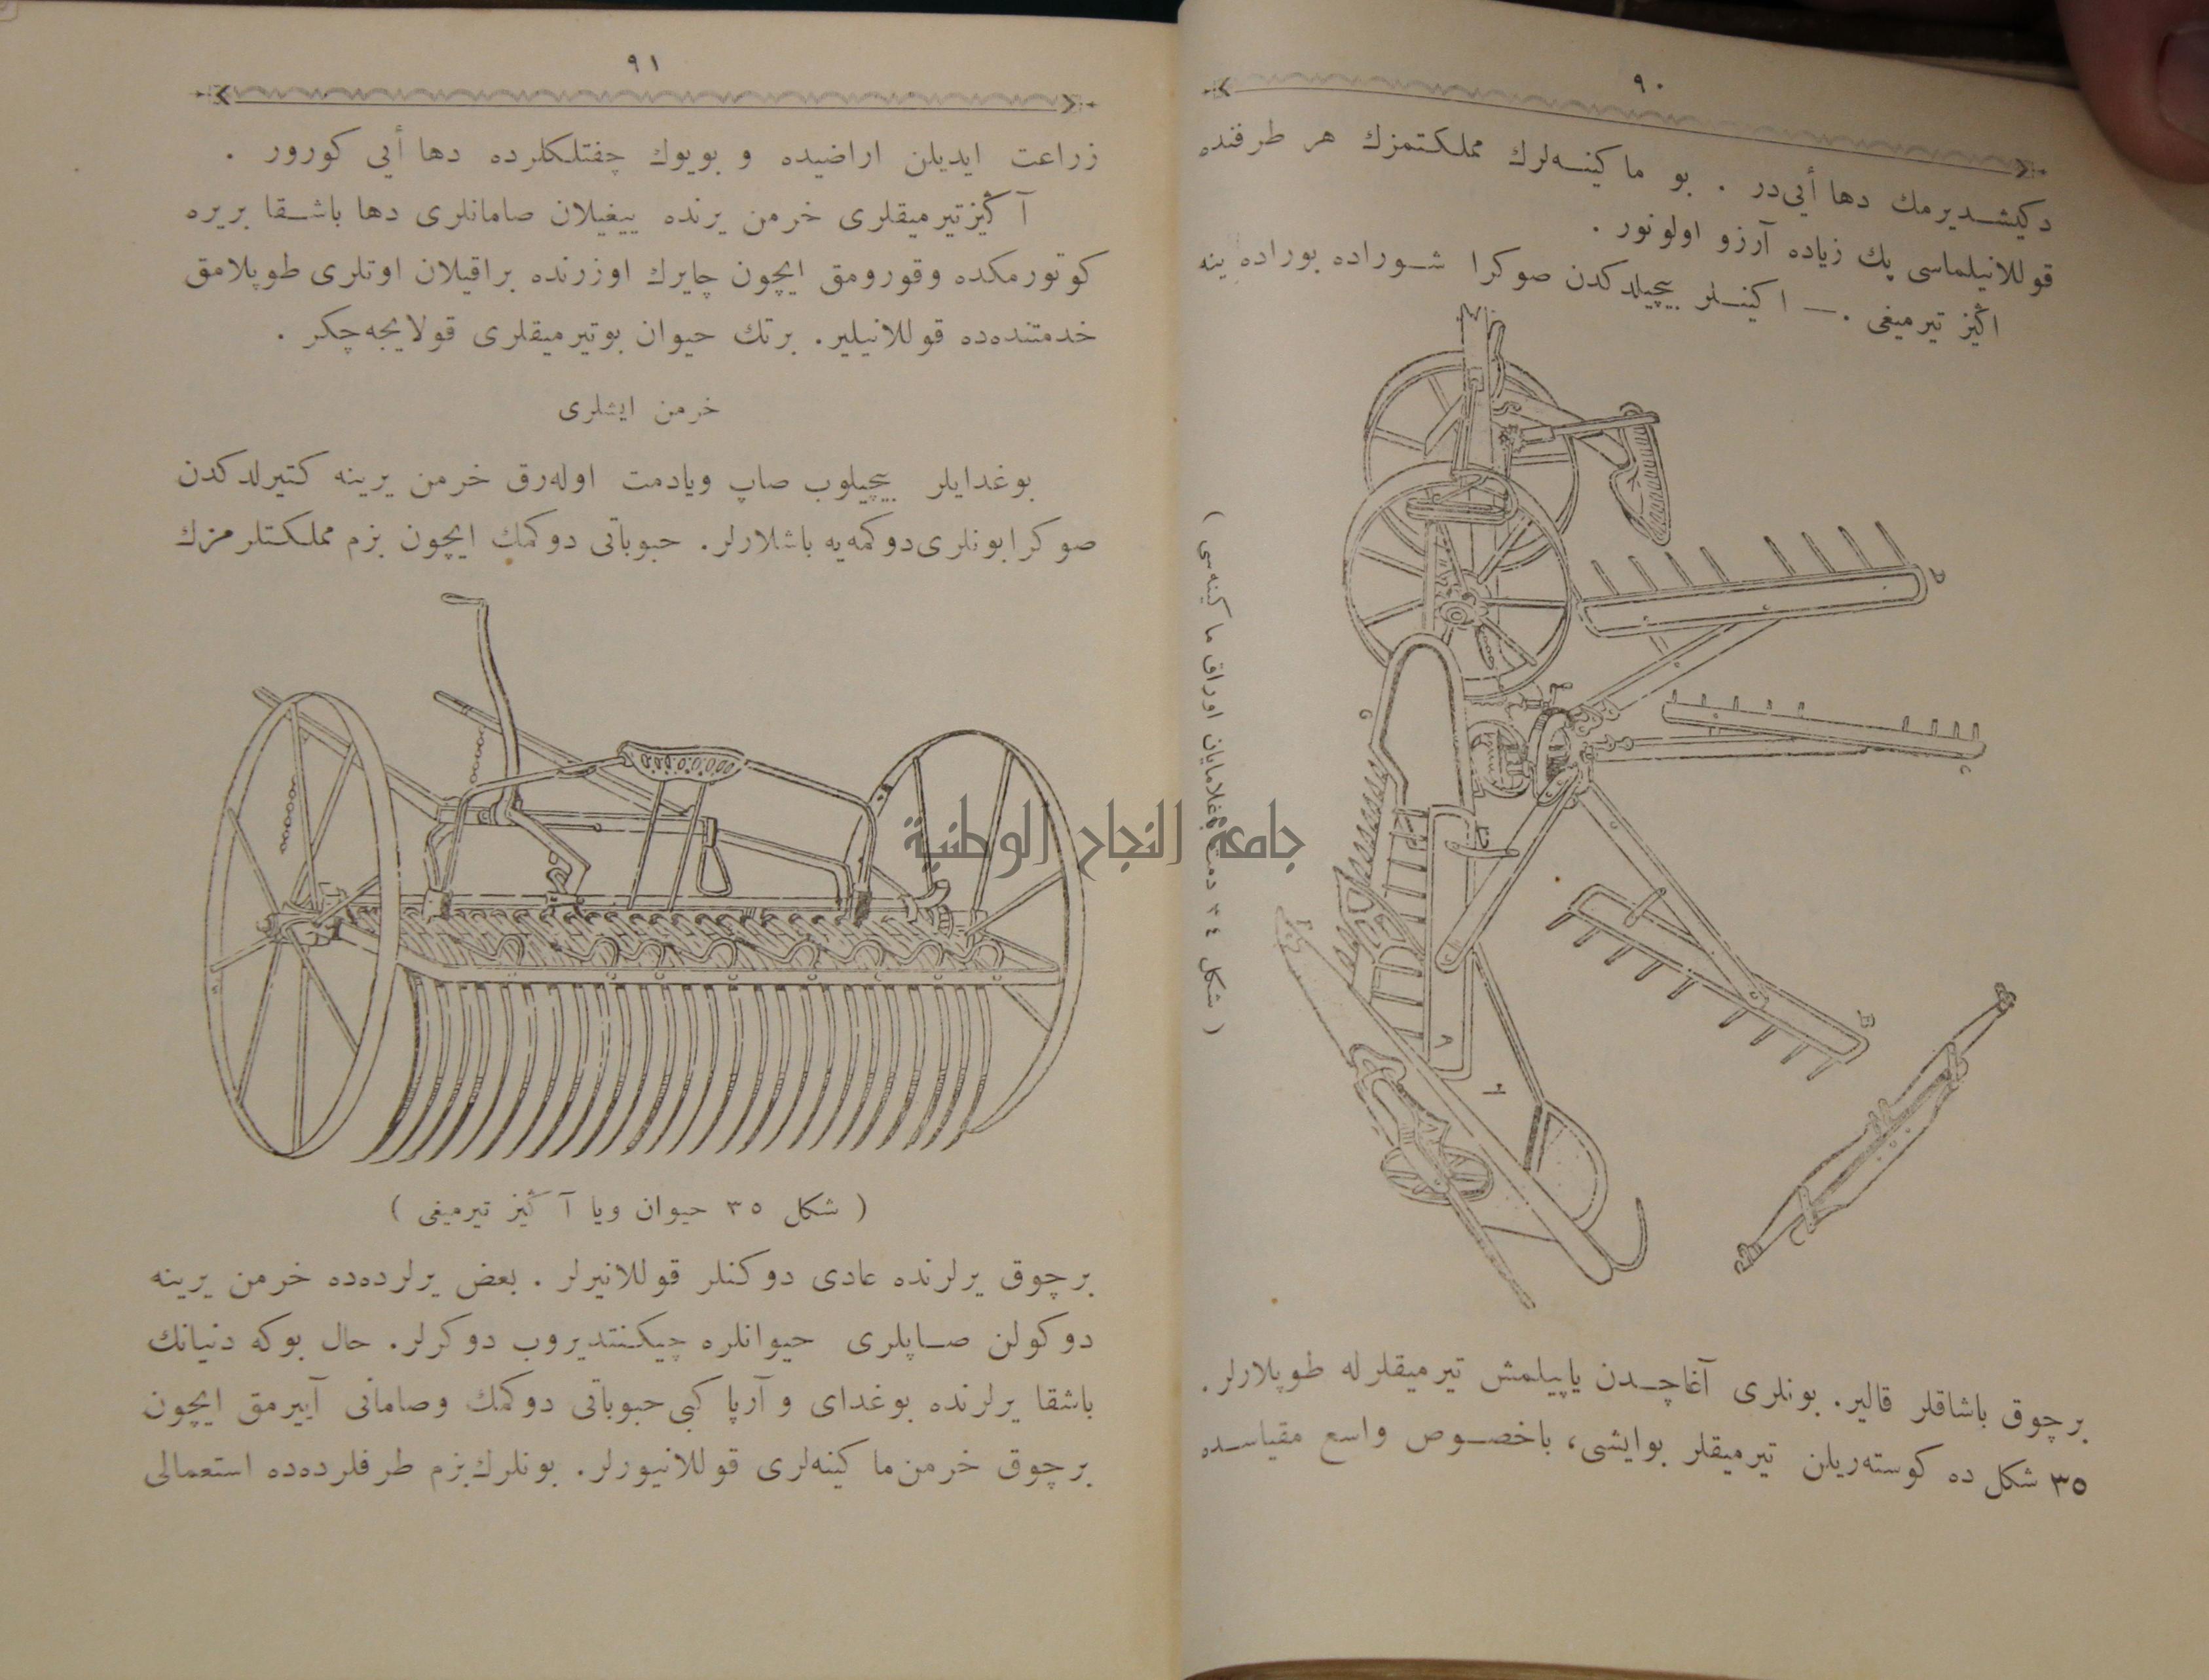 ٩٠
دكیشـدیرمك دها أیی‌در . بو ماكینـه‌لرك مملكتمزك هر طرفنده
قوللانیلماسی پك زیاده آرزو اولونور .
اڭیز تیرمیغی . — اكینـلر بیچیلدكدن صوكرا شـوراده بوراده ینه
( شكل ٣٤ دمت باغلامایان اوراق ماكینه‌سی )
برچوق باشاقلر قالیر. بونلری آغاچـدن یاپیلمش تیرمیقلرله طوپلارلر.
٣٥ شكل ده كوسته‌ریلن تیرمیقلر بوایشی، باخصـوص واسع مقیاسـده
٩١
زراعت ایدیلن اراضیده و بویوك چفتلكلرده دها أیی كورور .
آڭیزتیرمیقلری خرمن یرنده ییغیلان صامانلری دها باشـقا بریره
كوتورمكده وقورومق ایچون چایرك اوزرنده براقیلان اوتلری طوپلامق
خدمتنده‌ده قوللانیلیر. برتك حیوان بوتیرمیقلری قولایجه‌چكر .
خرمن ایشلری
بوغدایلر بیچیلوب صاپ ویادمت اوله‌رق خرمن یرینه كتیرلدكدن
صوكرابونلری‌دوكمه‌یه باشلارلر. حبوباتی دوكمك ایچون بزم مملكتلرمزك
( شكل ٣٥ حیوان ویا آڭیز تیرمیغی )
برچوق یرلرنده عادی دوكنلر قوللانیرلر . بعض یرلرده‌ده خرمن یرینه
دوكولن صـاپلری حیوانلره چیكـنتدیروب دوكرلر. حال بوكه دنیانك
باشقا یرلرنده بوغدای و آرپا كبی‌حبوباتی دوكمك وصامانی آییرمق ایچون
برچوق خرمن‌ماكینه‌لری قوللانیورلر. بونلرك‌بزم طرفلرده‌ده استعمالی
جامعة النجاح الوطنية